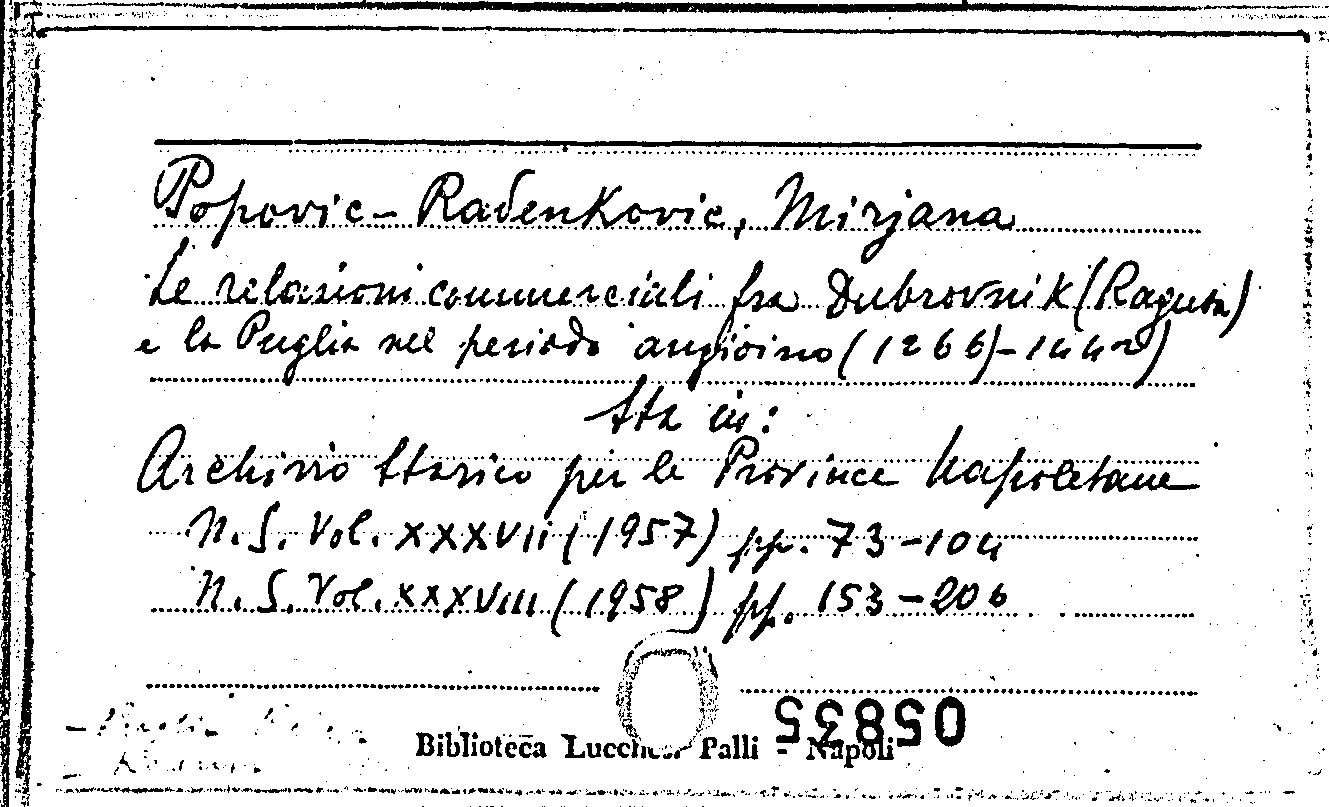 Popovic-Radenkovic, Mirjana
Le relazioni commerciali fra Dubrovnik (Ragusa)
e la Puglia nel periodo angioino (1266)-1442)
Sta in:
Archivio Storico per le Province Napoletane
N. S. Vol. XXXVII (1957) pp. 73-104
N. S. Vol. XXXVIII (1958) pp. 153-206
05835
Biblioteca Lucchesi Palli - Napoli